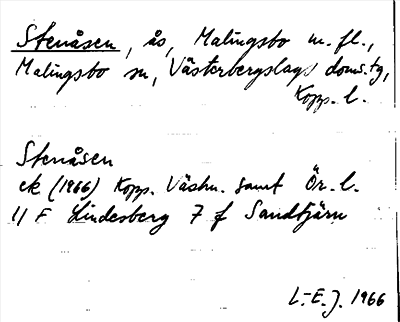 Stenåsen, ås, Malingsbo m.fl.,
Malingsbo sn, Västerbergslags doms.tg,
Kopp. l.
Stenåsen
ek (1966) Kopp. Västm. samt Ör. l.
11 F Lindesberg 7 f Sandtjärn
L-E. J. 1966